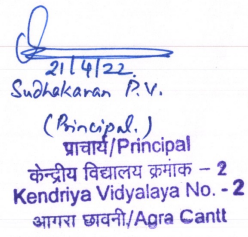 21/4/22.
Sudhakaran P.V.
(Principal.)
प्राचार्य/Principal
केन्द्रीय विद्यालय क्रमांक – 2
Kendriya Vidyalaya No. - 2
आगरा छावनी/Agra Cantt